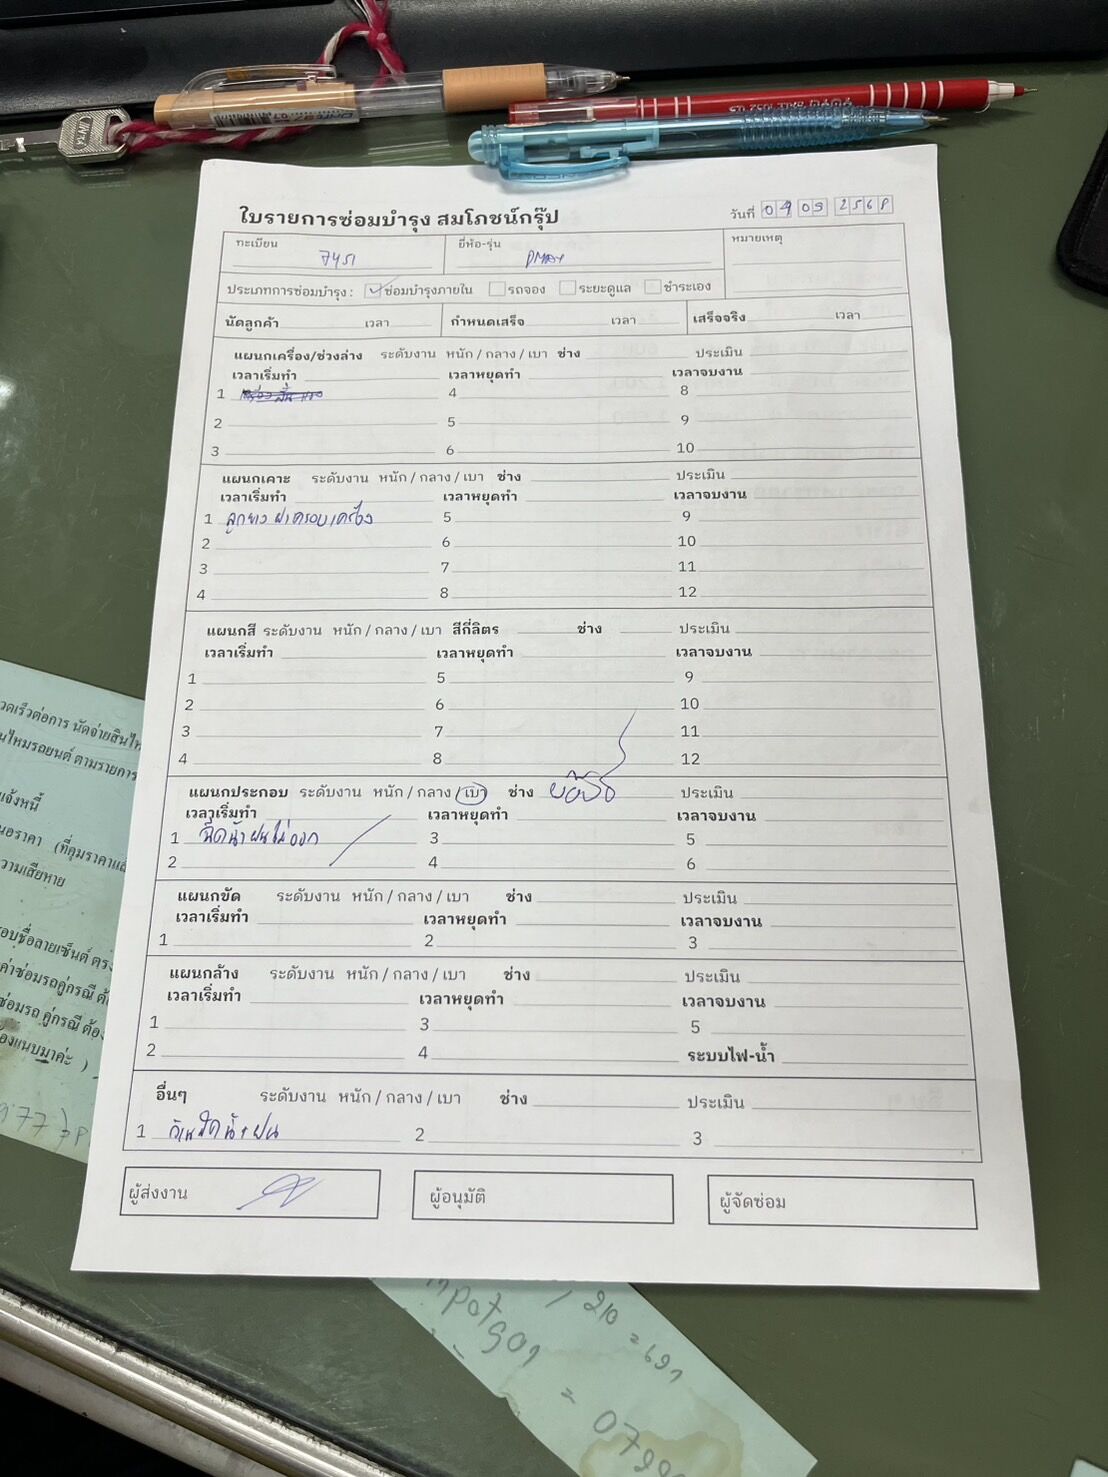 ใบรายการซ่อมบำรุง สมโภชน์กรุ๊ป
วันที่ 04 09 2568
ทะเบียน 7451 ยี่ห้อ-รุ่น DMAX หมายเหตุ
ประเภทการซ่อมบำรุง : ซ่อมบำรุงภายใน รถจอง ระยะดูแล ชำระเอง
นัดลูกค้า เวลา กำหนดเสร็จ เวลา เสร็จจริง เวลา
แผนกเครื่อง/ช่วงล่าง ระดับงาน หนัก / กลาง / เบา ช่าง ประเมิน
เวลาเริ่มทำ เวลาหยุดทำ เวลาจบงาน
1 4 8
2 5 9
3 6 10
แผนกเคาะ ระดับงาน หนัก / กลาง / เบา ช่าง ประเมิน
เวลาเริ่มทำ เวลาหยุดทำ เวลาจบงาน
1 ลูกยาง ฝาครอบเครื่อง 5 9
2 6 10
3 7 11
4 8 12
แผนกสี ระดับงาน หนัก / กลาง / เบา สีกี่ลิตร ช่าง ประเมิน
เวลาเริ่มทำ เวลาหยุดทำ เวลาจบงาน
1 5 9
2 6 10
3 7 11
4 8 12
แผนกประกอบ ระดับงาน หนัก / กลาง / เบา ช่าง ประเมิน
เวลาเริ่มทำ เวลาหยุดทำ เวลาจบงาน
1 ฉีดน้ำฝนไม่ออก 3 5
2 4 6
แผนกขัด ระดับงาน หนัก / กลาง / เบา ช่าง ประเมิน
เวลาเริ่มทำ เวลาหยุดทำ เวลาจบงาน
1 2 3
แผนกล้าง ระดับงาน หนัก / กลาง / เบา ช่าง ประเมิน
เวลาเริ่มทำ เวลาหยุดทำ เวลาจบงาน
1 3 5
2 4 ระบบไฟ-น้ำ
อื่นๆ ระดับงาน หนัก / กลาง / เบา ช่าง ประเมิน
1 ก้านฉีดน้ำฝน 2 3
ผู้ส่งงาน ผู้อนุมัติ ผู้จัดซ่อม
วดเร็วต่อการ นัดจ่ายสินไห
นไหมรถยนต์ ตามรายการ
แจ้งหนี้
นอราคา (ที่คุมราคาแล
วามเสียหาย
อบชื่อลายเซ็นต์ ตรง
ค่าซ่อมรถคู่กรณี ต้
ซ่อมรถ คู่กรณี ต้อง
องแนบมาค่ะ )